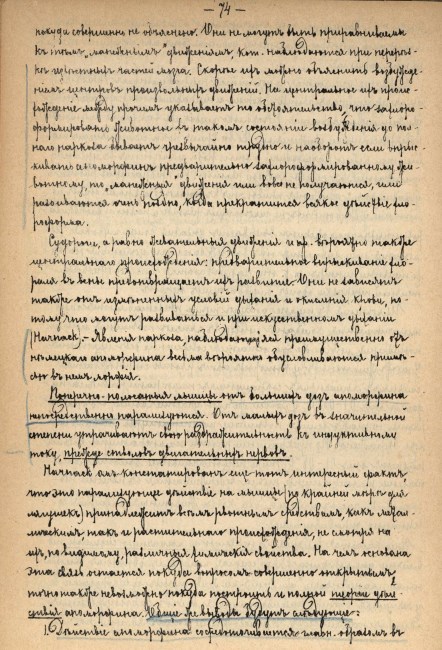 — 74 —
покуда совершенно не объяснено. Они не могутъ быть приравниваемы
къ тѣмъ „манежнымъ“ движеніямъ, кот. наблюдаются при перерыв-
частей мозга. Скорѣе ихъ можно объяснить возбужде-
ніемъ центровъ произвольныхъ движеній. На центральное ихъ проис-
хожденіе между прочимъ указываетъ то обстоятельство, что захлоро-
формировано животное въ такомъ состояніи возбужденія до пол-
наго наркоза бываетъ чрезвычайно трудно и наоборотъ если впрыс-
кивать апоморфинъ предварительно захлороформированному жи-
вотному, то „манежныя“ движенія или вовсе не получаются, или
развиваются очень поздно, когда прекратится всякое дѣйствіе хло-
роформа.
Судороги, а равно жевательныя движенія и пр. вѣроятно также
центральнаго происхожденія: предварительное впрыскиваніе хло-
рала въ вену предотвращаетъ ихъ развитіе. Они не зависятъ
также отъ измѣненныхъ условій дыханія и окисленія крови, по-
тому что могутъ развиваться и при искусственномъ дыханіи
(Harnack). – Явленія наркоза, наблюдающіяся преимущественно отъ
апоморфина весьма вѣроятно обусловливаются примѣ-
сью въ немъ морфія.
Поперечно-полосатыя мышцы отъ большихъ дозъ апоморфина
непосредственно парализуются. Отъ малыхъ дозъ въ значительной
степени утрачиваютъ свою раздражительность къ индуктивному
току, прежде стволовъ двигательныхъ нервовъ.
Harnack'омъ констатированъ еще тотъ интересный фактъ,
что это парализующее дѣйствіе на мышцы (по крайней мѣрѣ для
лягушекъ) принадлежитъ всѣмъ рвотнымъ средствамъ, какъ метал-
лическимъ такъ и растительнаго происхожденія, не смотря на
ихъ, по видимому, различныя химическія свойства. На чемъ основана
эта связь остается покуда вопросомъ совершенно открытымъ,
также невозможно покуда построить и полной теоріи дѣй-
ствія апоморфина. Общіе же выводы будутъ слѣдующіе:
1. Дѣйствіе апоморфина сосредоточивается главн. образомъ въ